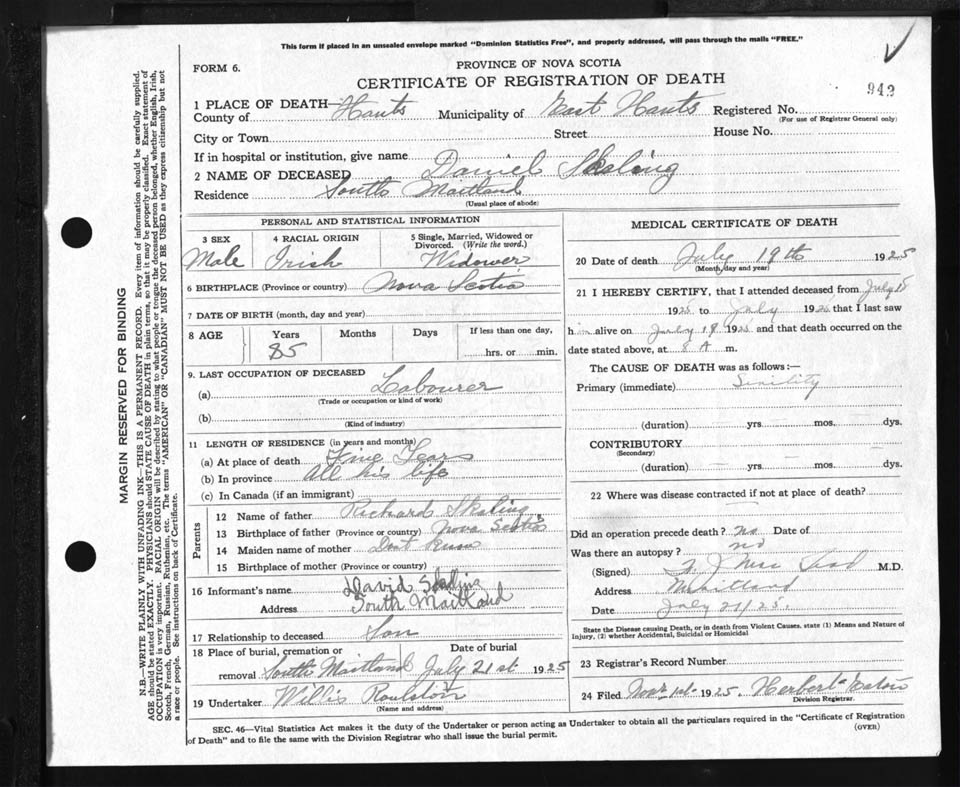 This form if placed in an unsealed envelope marked "Dominion Statistics Free", and properly addressed, will pass through the mails "FREE."
FORM 6.
PROVINCE OF NOVA SCOTIA
CERTIFICATE OF REGISTRATION OF DEATH
943
1 PLACE OF DEATH—
County of Hants Municipality of East Hants Registered No.
(For use of Registrar General only)
City or Town Street House No.
If in hospital or institution, give name
2 NAME OF DECEASED Daniel Skaling
Residence South Maitland
(Usual place of abode)
PERSONAL AND STATISTICAL INFORMATION
3 SEX 4 RACIAL ORIGIN 5 Single, Married, Widowed or Divorced. (Write the word.)
Male Irish Widower
6 BIRTHPLACE (Province or country) Nova Scotia
7 DATE OF BIRTH (month, day and year)
8 AGE Years Months Days If less than one day,
85 hrs. or min.
9. LAST OCCUPATION OF DECEASED
(a) Labourer
(Trade or occupation or kind of work)
(b)
(Kind of industry)
11 LENGTH OF RESIDENCE (in years and months)
(a) At place of death Five Years
(b) In province All his life
(c) In Canada (if an immigrant)
Parents
12 Name of father Richard Skaling
13 Birthplace of father (Province or country) Nova Scotia
14 Maiden name of mother Dont Know
15 Birthplace of mother (Province or country)
16 Informant's name David Skaling
Address South Maitland
17 Relationship to deceased Son
18 Place of burial, cremation or removal Date of burial
South Maitland July 21st 1925
19 Undertaker Willis Roulston
(Name and address)
MEDICAL CERTIFICATE OF DEATH
20 Date of death July 19th 1925
(Month, day and year)
21 I HEREBY CERTIFY, that I attended deceased from July 15
1925 to July 1925 that I last saw
him alive on July 19 1925 and that death occurred on
date stated above, at 8 A m.
The CAUSE OF DEATH was as follows:—
Primary (immediate) Senility
(duration) yrs. mos. dys.
CONTRIBUTORY
(Secondary)
(duration) yrs. mos. dys.
22 Where was disease contracted if not at place of death?
Did an operation precede death? no Date of
Was there an autopsy? no
(Signed) M.D.
Address Maitland
Date July 21/25.
State the Disease causing Death, or in death from Violent Causes, state (1) Means and Nature of Injury, (2) whether Accidental, Suicidal or Homicidal
23 Registrar's Record Number
24 Filed 1st 1925. Herbert Eaton
Division Registrar.
SEC. 46—Vital Statistics Act makes it the duty of the Undertaker or person acting as Undertaker to obtain all the particulars required in the "Certificate of Registration
of Death" and to file the same with the Division Registrar who shall issue the burial permit.
(OVER)
MARGIN RESERVED FOR BINDING
N.B.—WRITE PLAINLY WITH UNFADING INK—THIS IS A PERMANENT RECORD. Every item of information should be carefully supplied.
AGE should be stated EXACTLY. PHYSICIANS should STATE CAUSE OF DEATH in plain terms, so that it may be properly classified. Exact statement of
OCCUPATION is very important. RACIAL ORIGIN will be described by stating to what people or tongue the deceased person belonged, whether English, Irish,
Scotch, French, German, Russian, Ruthenian, etc. The terms "AMERICAN" OR "CANADIAN" MUST NOT BE USED as they express citizenship but not
a race or people. See instructions on back of Certificate.